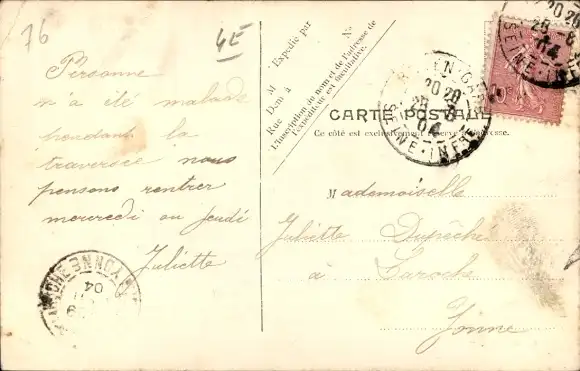 76
4E
Personne
n'a été malade
pendant la
traversée nous
pensons rentrer
mercredi ou jeudi
Juliette
YONNE
04
Expédié par
M
Dem à
Rue
N°
L'inscription du nom et de l'adresse de
l'expéditeur est facultative.
CARTE POSTALE
Ce côté est exclusivement réservé à l'adresse.
Mademoiselle
Juliette
à Laroche
Yonne
20 20
25
04
SEINE-INFRE
20 20
25 6
04
SEINE-INFRE